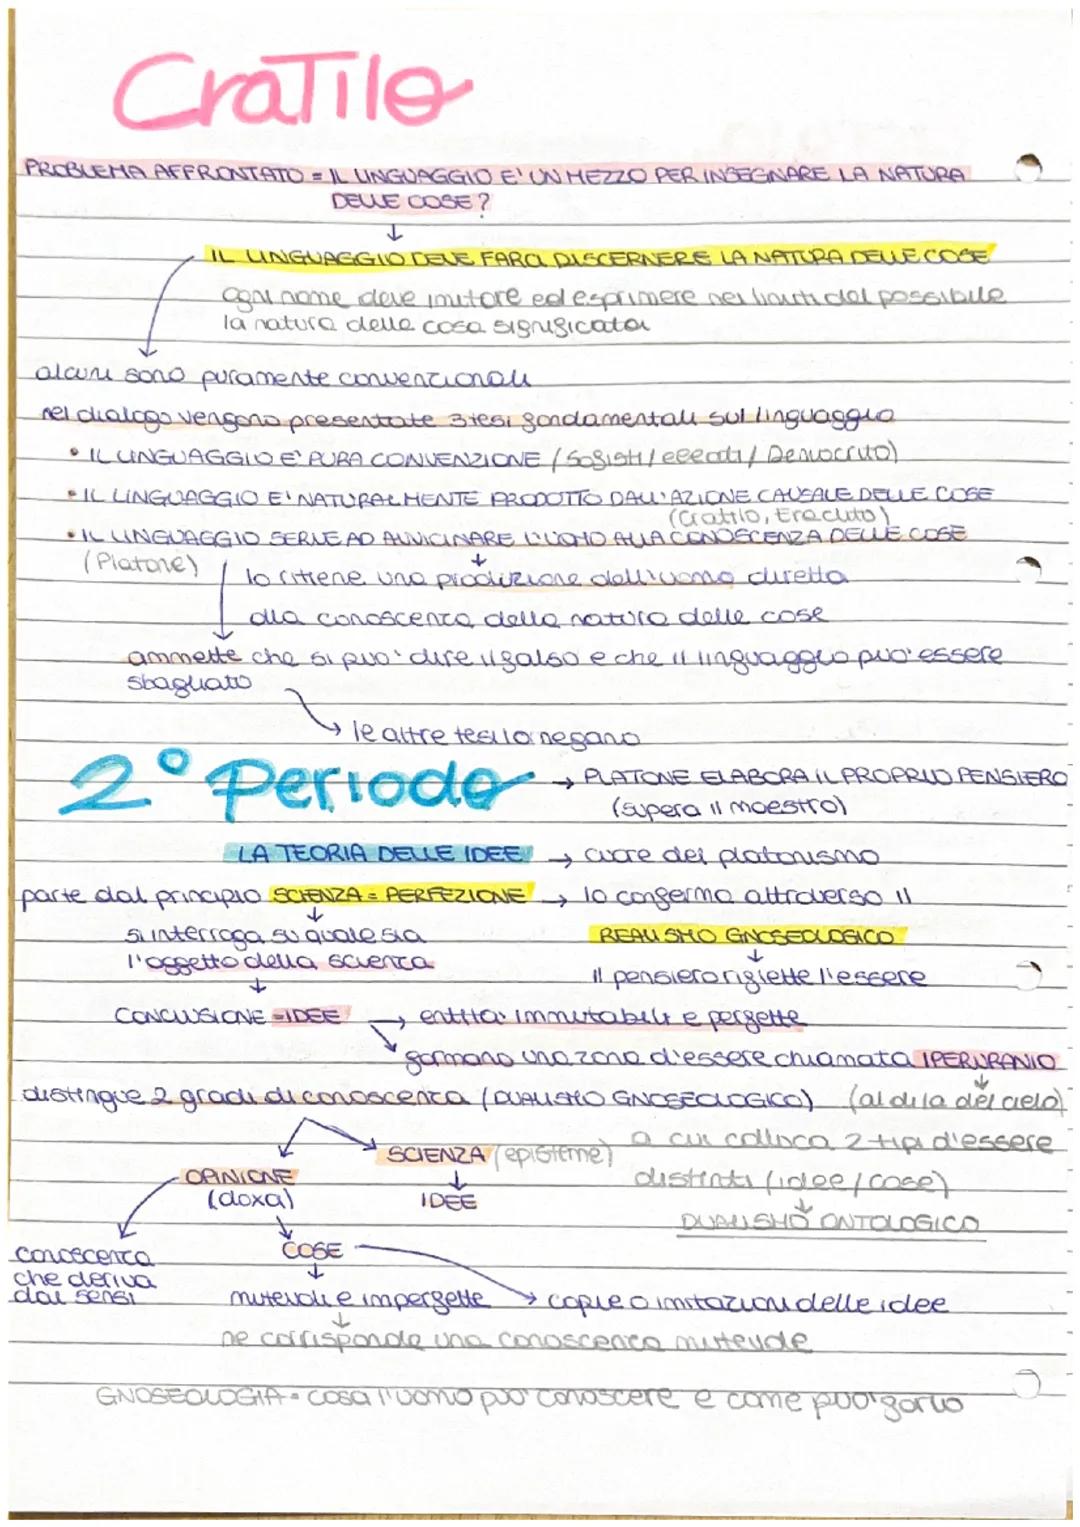 CraTilo
PROBLEMA AFFRONTATO = IL LINGUAGGIO E' UN MEZZO PER INSEGNARE LA NATURA
DELLE COSE?
↓
IL LINGUAGGIO DEVE FARCI DISCERNERE LA NATURA DELLE COSE
ogni nome deve imitare ed esprimere nei limiti del possibile
la natura della cosa significata
alcuni sono puramente convenzionali
nel dialogo vengono presentate 3 tesi fondamentali sul linguaggio
• IL LINGUAGGIO E' PURA CONVENZIONE (Sofisti/eleati/Democrito)
• IL LINGUAGGIO E' NATURALMENTE PRODOTTO DALL'AZIONE CAUSALE DELLE COSE
(Cratilo, Eraclito)
• IL LINGUAGGIO SERVE AD AVVICINARE L'UOMO ALLA CONOSCENZA DELLE COSE
(Platone) ↓
lo ritiene una produzione dell'uomo diretta
alla conoscenza della natura delle cose
ammette che si puo' dire il falso e che il linguaggio puo' essere
sbagliato
→ le altre tesi lo negano
2° Periodo → PLATONE ELABORA IL PROPRIO PENSIERO
(supera il maestro)
LA TEORIA DELLE IDEE → cuore del platonismo
parte dal principio SCIENZA = PERFEZIONE → lo conferma attraverso il
↓
si interroga su quale sia REALISMO GNOSEOLOGICO
l'oggetto della scienza ↓
↓ il pensiero riflette l'essere
CONCLUSIONE = IDEE → entita' immutabili e perfette
formano una zona d'essere chiamata IPERURANIO
↓
distingue 2 gradi di conoscenza (DUALISMO GNOSEOLOGICO) (al di la del cielo)
SCIENZA (episteme) a cui colloca 2 tipi d'essere
OPINIONE ↓ distinti (idee/cose)
(doxa) IDEE ↓
DUALISMO ONTOLOGICO
conoscenza COSE
che deriva ↓
dai sensi mutevoli e imperfette → copie o imitazioni delle idee
↓
ne corrisponde una conoscenza mutevole
GNOSEOLOGIA = cosa l'uomo puo' conoscere e come puo' farlo